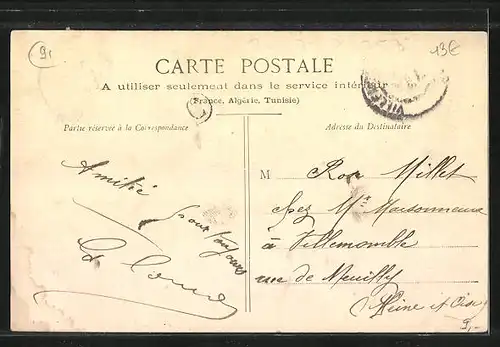 91
13€
CARTE POSTALE
A utiliser seulement dans le service intérieur
(France, Algérie, Tunisie)
Partie réservée à la Correspondance
Adresse du Destinataire
VILLE
Amitié
pour toujours
M Millet
chez Mr Maisonneuve
à Villemomble
rue de Neuilly
Seine et Oise
9,-